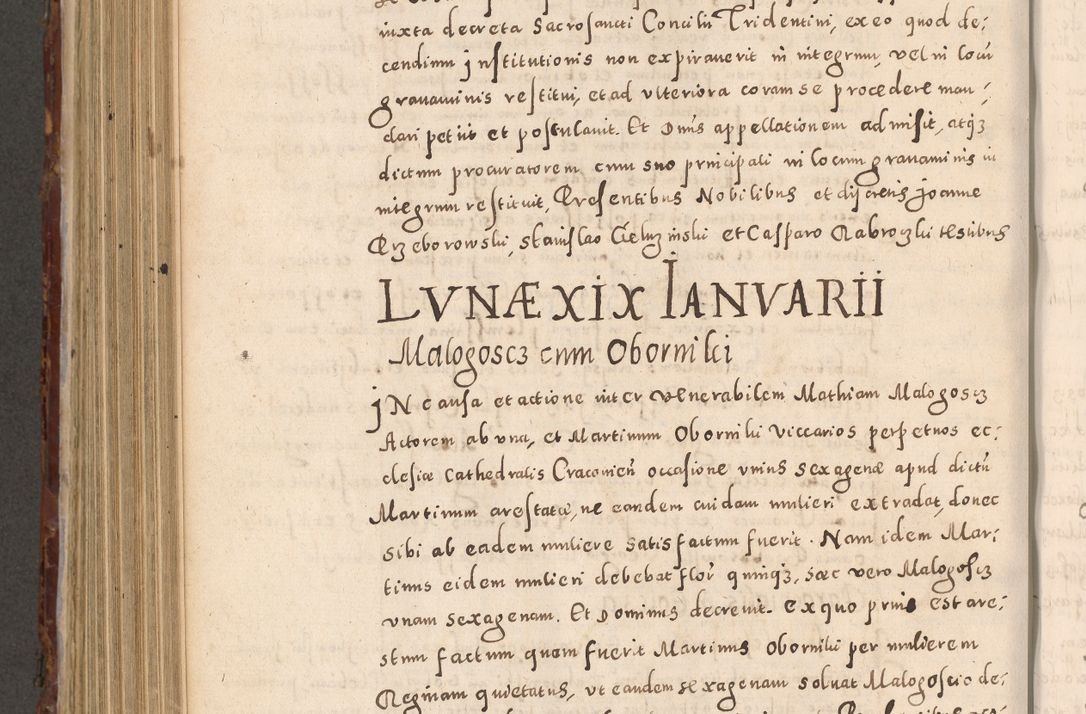 iuxta decreta Sacrosancti Concilii Tridentini, ex eo quod de;
cendium jnstitutionis non expirauerit in integrum, vel in locū
grauaminis restitui, et ad vlteriora coram se procedere man;
dari petiit et postulauit. Et Dnūs appellationem admisit, atq3
dictum procuratorem cum suo principali in locum grauaminis in
integrum restituit, Presentibus Nobilibus et discretis Joanne
Przeborowski, Stanislao Cieluzinski et Casparo Nabrozki testibus
LVNÆ XIX IANVARII
Malogoscz cum Obornilii
jN causa et actione inter venerabilem Mathiam Malogoscz
Actorem ab vna, et Martinum Obornilii viccarios perpetuos ec;
clesiæ Cathedralis Cracouien̄ occasione vnius sexagenæ apud dictū
Martinum arestatæ, ne eandem cuidam mulieri extradat, donec
sibi ab eadem muliere satisfactum fuerit. Nam idem Mar;
tinus eidem mulieri debebat flor̄ quinq3, sæc vero Malogoscz
vnam sexagenam. Et Dominus decreuit. ex quo prius est are;
stum factum quam fuerit Martinus Obornilii per mulierem
Reginam quietatus, vt eandem sexagenam soluat Malogoscio de;